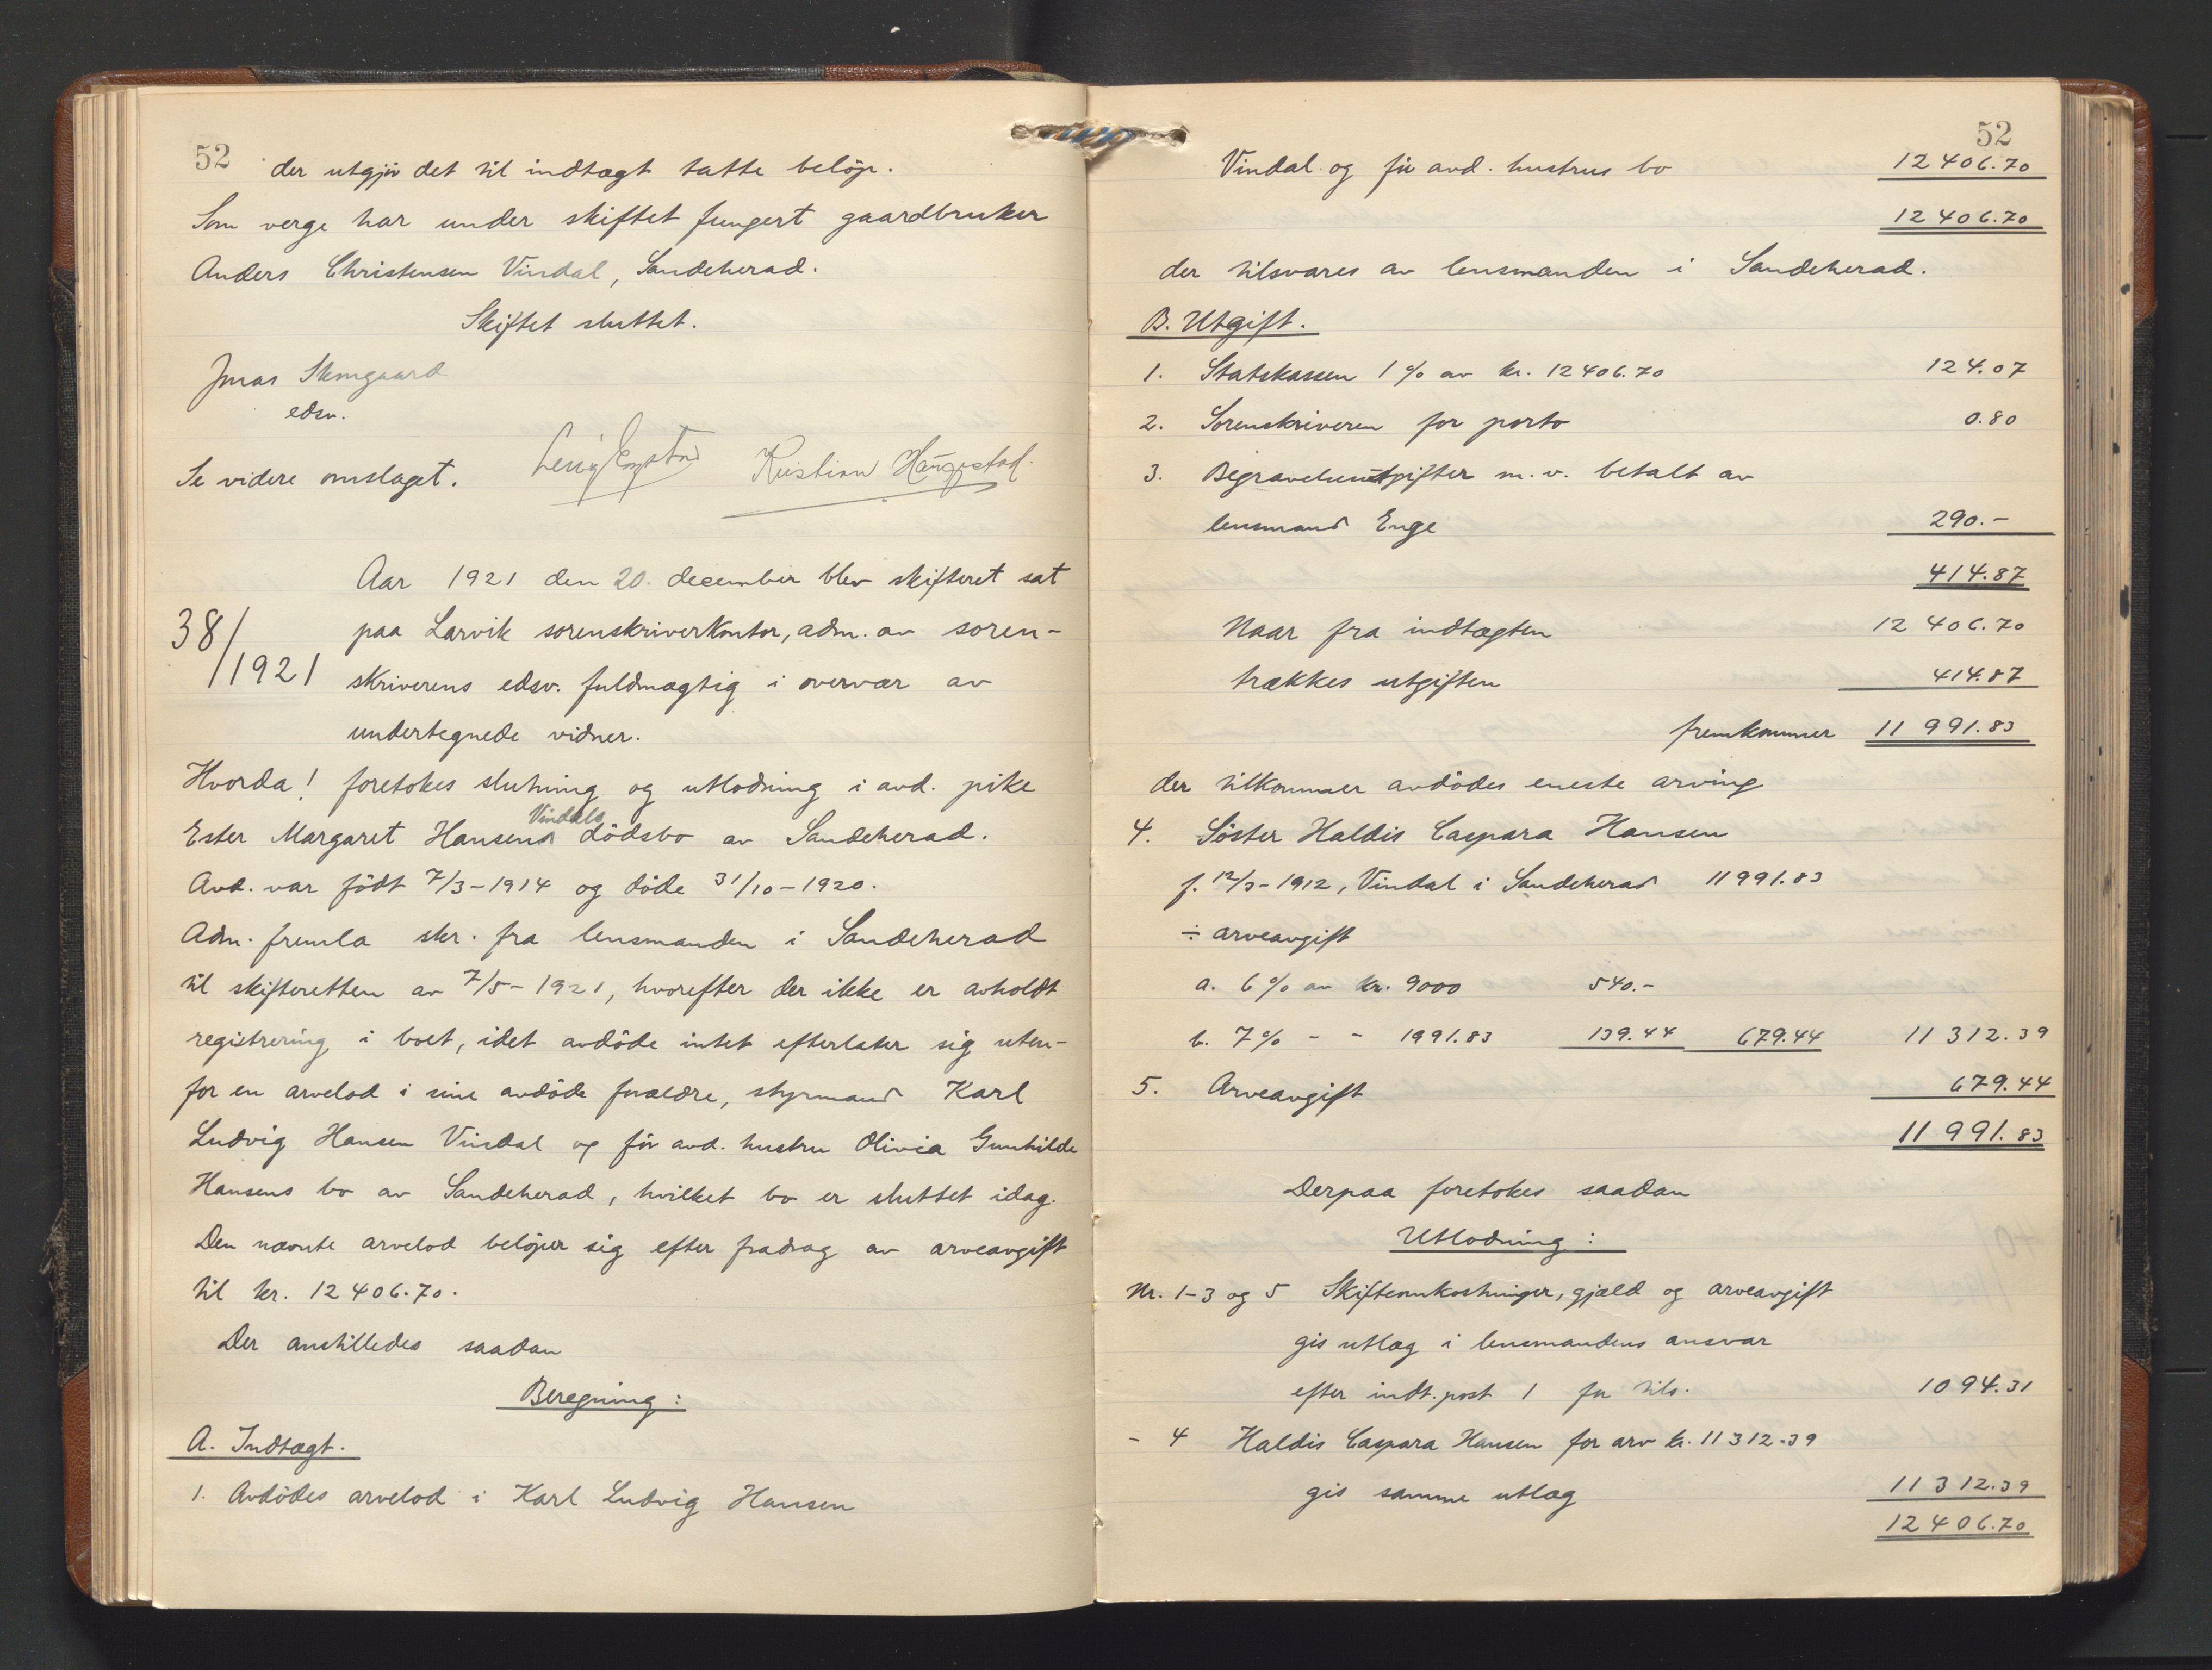 52 der utgjør det til indtægt tatte beløp.
Som verge har under skiftet fungert gaardbruker
Anders Christensen Vindal, Sandeherad.
Skiftet sluttet.
Jonas Skougaard
edsv.
Se videre omslaget. Kristian Haugestad.
Aar 1921 den 20. december blev skifteret sat
38/1921 paa Larvik sorenskriverkontor, adm. av soren-
skriverens edsv. fuldmægtig i overvær av
undertegnede vidner.
Hvorda! foretokes slutning og utlodning i avd. pike
Vindals
Ester Margaret Hansens dødsbo av Sandeherad.
Avd. var født 7/3-1914 og døde 31/10-1920.
Adm. fremla skr. fra lensmanden i Sandeherad
til skifteretten av 7/5-1921, hvorefter der ikke er avholdt
registrering i boet, idet avdøde intet efterlater sig uten-
for en arvelod i sine avdøde forældre, styrmand Karl
Ludvig Hansen Vindal og før avd. hustru Olivia Gunhilde
Hansens bo av Sandeherad, hvilket bo er sluttet idag.
Den nævnte arvelod beløper sig efter fradrag av arveavgift
til kr. 12406.70.
Der anstilledes saadan
Beregning:
A. Indtægt.
1. Avdødes arvelod i Karl Ludvig Hansen
52
Vindal og før avd. hustrus bo 12406.70
12406.70
der tilsvares av lensmanden i Sandeherad.
B. Utgift.
1. Statskassen 1 % av kr. 12406.70 124.07
2. Sorenskriveren for porto 0.80
3. Begravelsesutgifter m.v. betalt av
lensmand Enge 290.-
414.87
Naar fra indtægten 12406.70
trækkes utgiften 414.87
fremkommer 11991.83
der tilkommer avdødes eneste arving
4. Søster Haldis Caspara Hansen
f. 12/3-1912, Vindal i Sandeherad 11991.83
÷ arveavgift
a. 6 % av kr. 9000 540.-
b. 7 % - - 1991.83 139.44 679.44 11312.39
5. Arveavgift 679.44
11991.83
Derpaa foretokes saadan
Utlodning:
Nr. 1-3 og 5 Skifteomkostninger, gjæld og arveavgift
gis utlæg i lensmandens ansvar
efter indt. post 1 for tils. 1094.31
- 4 Haldis Caspara Hansen for arv kr. 11312.39
gis samme utlæg 11312.39
12406.70